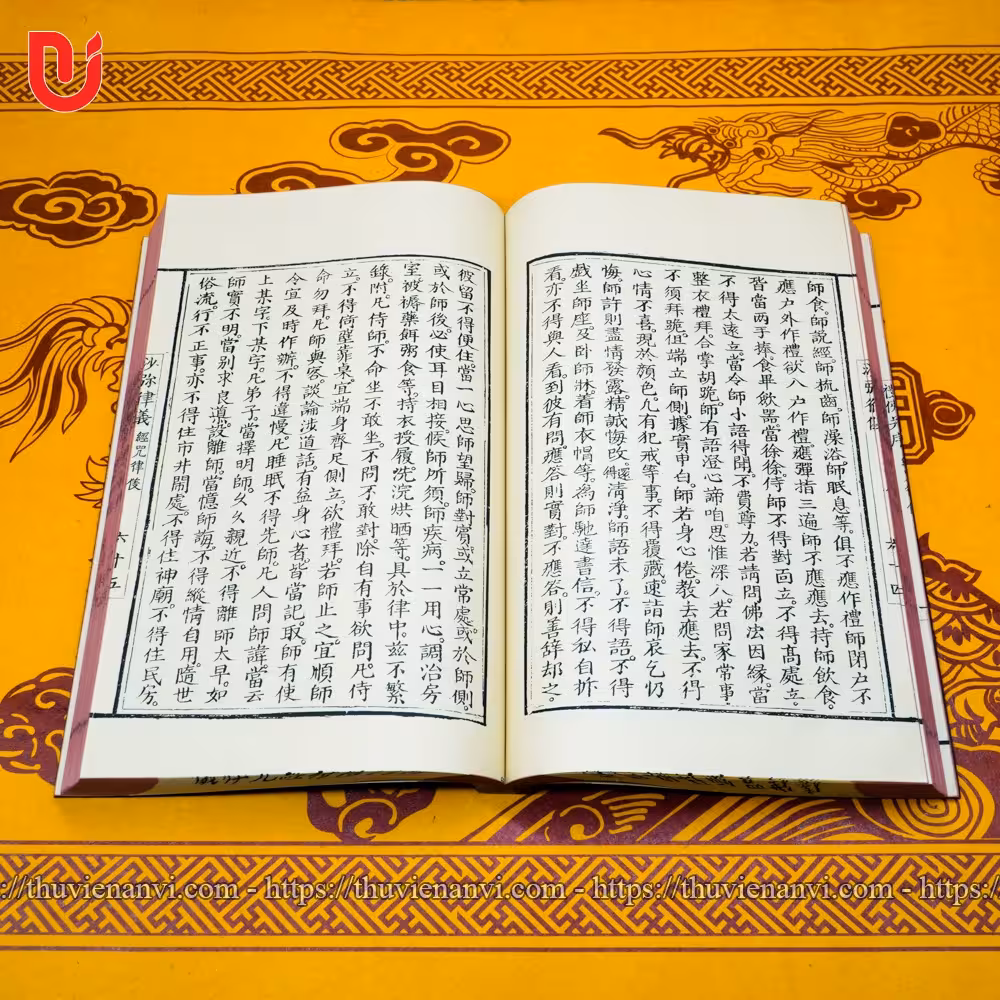 師食。師說經。師梳齒。師澡浴。師眠息等。俱不應作禮。師閉户不
應户外作禮。欲入户作禮。應彈指三遍。師不應應去。持師飲食。
皆當兩手捧。食畢飲器。當徐徐侍師。不得對面立。不得高處立。
不得太遠立。當令師小語得聞。不費尊力。若請問佛法因緣。當
整衣禮拜。合掌胡跪。師有語。澄心諦咱思惟深入。若問家常事。
不須拜跪。但端立師側。據實申白。師若身心倦。教去應去。不得
心情不喜。現於顏色。凡有犯戒等事。不得覆藏。速詣師哀乞忏
悔。師許則盡情發露。精誠悔改。還得清淨。師語未了。不得語。不得
戲坐師座。及卧師牀。着師衣帽等。為師馳達書信。不得私自拆
看。亦不得與人看。到彼有問。應答則實對。不應答。則善辞却之。
彼留不得便住。當一心思師望歸。師對賓。或立常處。或於師側。
或於師後。必使耳目相接。候師所須。師疾病。一一用心。調冶房
室被褥藥餌粥食等。持衣投履。洗浣烘晒等。具於律中。兹不繁
錄。附。凡侍師。不命坐不敢坐。不問不敢對。除自有事欲問。凡侍
立。不得倚壁靠桌。宜端身齊足側立。欲禮拜。若師止之。宜順師
命勿拜。凡師與客。談論涉道話。有益身心者。皆當記取。師有使
令宜及時作辦。不得違慢。凡睡眠不得先師。凡人問師諱。當云
上某字下某字。凡弟子當擇明師。久久親近。不得離師太早。如
師實不明。當别求良道。設離師。當憶師誨。不得縱情自用。隨世
俗流。行不正事。亦不得住市井鬧處。不得住神廟。不得住民房。
沙弥律義 經咒律儀 六十五
https://thuvienanvi.com - https://thuvienanvi.com - https://thuvienanvi.com